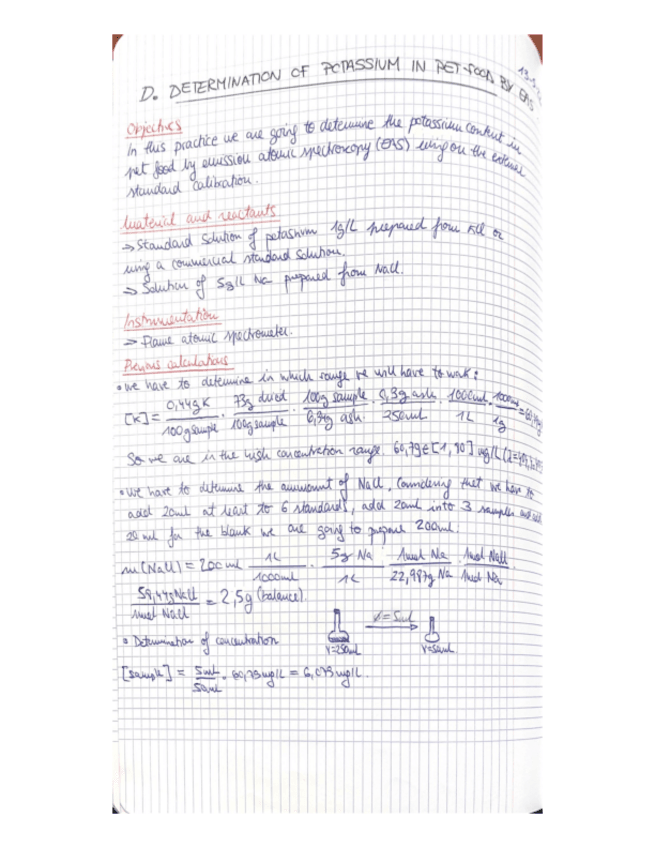 D. DETERMINATION OF POTASSIUM IN PET-FOOD BY EAS
Objectives
In this practice we are going to determine the potassium content in
pet food by emission atomic spectroscopy (EAS) using on the external
standard calibration.
Material and reactants
→ Standard Solution of potassium 1g/L prepared from KCl or
using a commercial standard solution.
→ Solution of 5g/L Na prepared from NaCl.
Instrumentation
→ Flame atomic spectrometer.
Previous calculations
• We have to determine in which range we will have to work:
[K] = 0,44g K / 100g sample · 73g dried / 100g sample · 100g sample / 6,34g ash · 0,3g ash / 250ml · 1000ml / 1L · 1000mg / 1g =
So we are in the high concentration range. 60,79 ∈ [1, 90] mg/L
• We have to determine the ammount of NaCl, Considering that we have to
add 20ml at least to 6 standards, add 20ml into 3 samples and add
20 ml for the blank we are going to prepare 200ml.
m(NaCl) = 200 ml · 1L / 1000ml · 5g Na / 1L · 1mol Na / 22,989g Na · 1mol NaCl / 1mol Na ·
58,44g NaCl / 1mol NaCl = 2,5g (balance).
• Determination of concentration
V=250ml
V=5ml
V=50ml
[sample] = 5ml / 50ml · 60,79mg/L = 6,079mg/L.